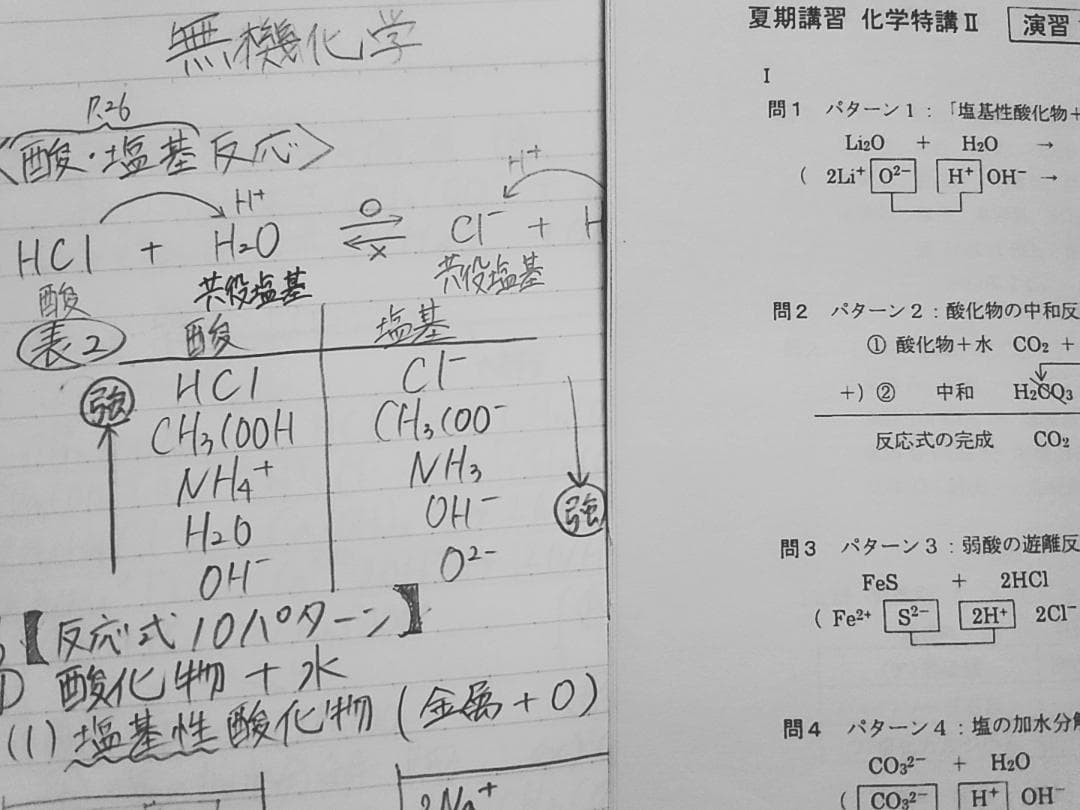 無機化学
P.26
〈酸・塩基反応〉
H⁺ H⁺
HCl + H₂O ⇄ Cl⁻ + H
○
×
酸 共役塩基 共役塩基
表2 酸 塩基
強 HCl Cl⁻
CH₃COOH CH₃COO⁻
NH₄⁺ NH₃
H₂O OH⁻ 強
OH⁻ O²⁻
【反応式10パターン】
酸化物+水
(1)塩基性酸化物(金属+O)
2Na⁺
夏期講習 化学特講Ⅱ 演習
I
問1 パターン1:「塩基性酸化物+
Li₂O + H₂O →
( 2Li⁺ O²⁻ H⁺ OH⁻ →
問2 パターン2:酸化物の中和反
① 酸化物+水 CO₂ +
+) ② 中和 H₂CO₃
反応式の完成 CO₂
問3 パターン3:弱酸の遊離反
FeS + 2HCl
( Fe²⁺ S²⁻ 2H⁺ 2Cl⁻
問4 パターン4:塩の加水分解
CO₃²⁻ + H₂O
( CO₃²⁻ H⁺ OH⁻